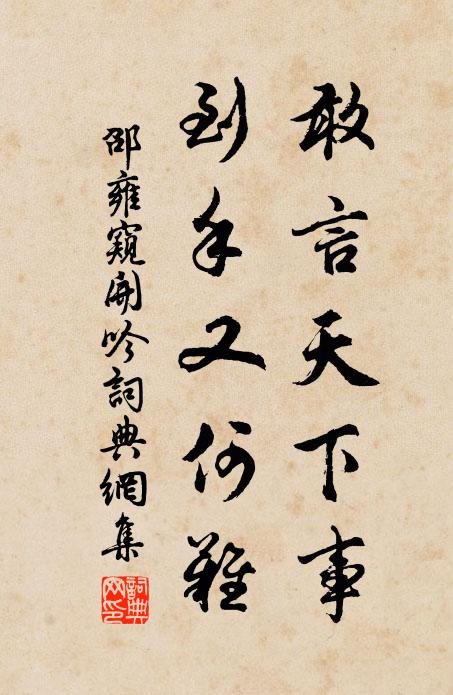 敢言天下事
到手又何難
邵雍窺開吟詞典網集
詞典网印